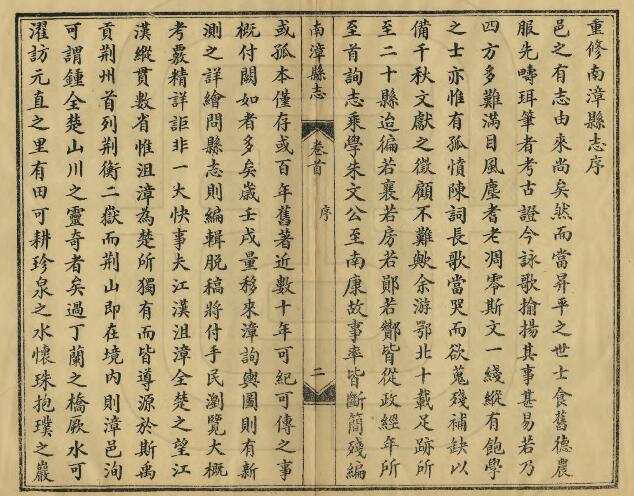 重修南漳縣志序
邑之有志由來尚矣然而當昇平之世士食舊德農
服先疇珥筆者考古證今詠歌揄揚其事甚易若乃
四方多難滿目風塵耆老凋零斯文一綫縱有飽學
之士亦惟有孤憤陳詞長歌當哭而欲蒐殘補缺以
備千秋文獻之徵顧不難歟余游鄂北十載足跡所
至二十縣迨徧若襄若房若鄖若酇皆從政經年所
至首詢志乘學朱文公至南康故事率皆斷簡殘編
南漳縣志
卷首
序
二
或孤本僅存或百年舊著近數十年可紀可傳之事
概付闕如者多矣歲壬戌量移來漳詢輿圖則有新
測之詳繪問縣志則編輯脫稿將付手民瀏覽大概
考覈精詳詎非一大快事夫江漢沮漳全楚之望江
漢縱貫數省惟沮漳為楚所獨有而皆導源於斯禹
貢荊州首列荊衡二嶽而荊山即在境內則漳邑洵
可謂鍾全楚山川之靈奇者矣過丁蘭之橋厥水可
濯訪元直之里有田可耕珍泉之水懷珠抱璞之巖